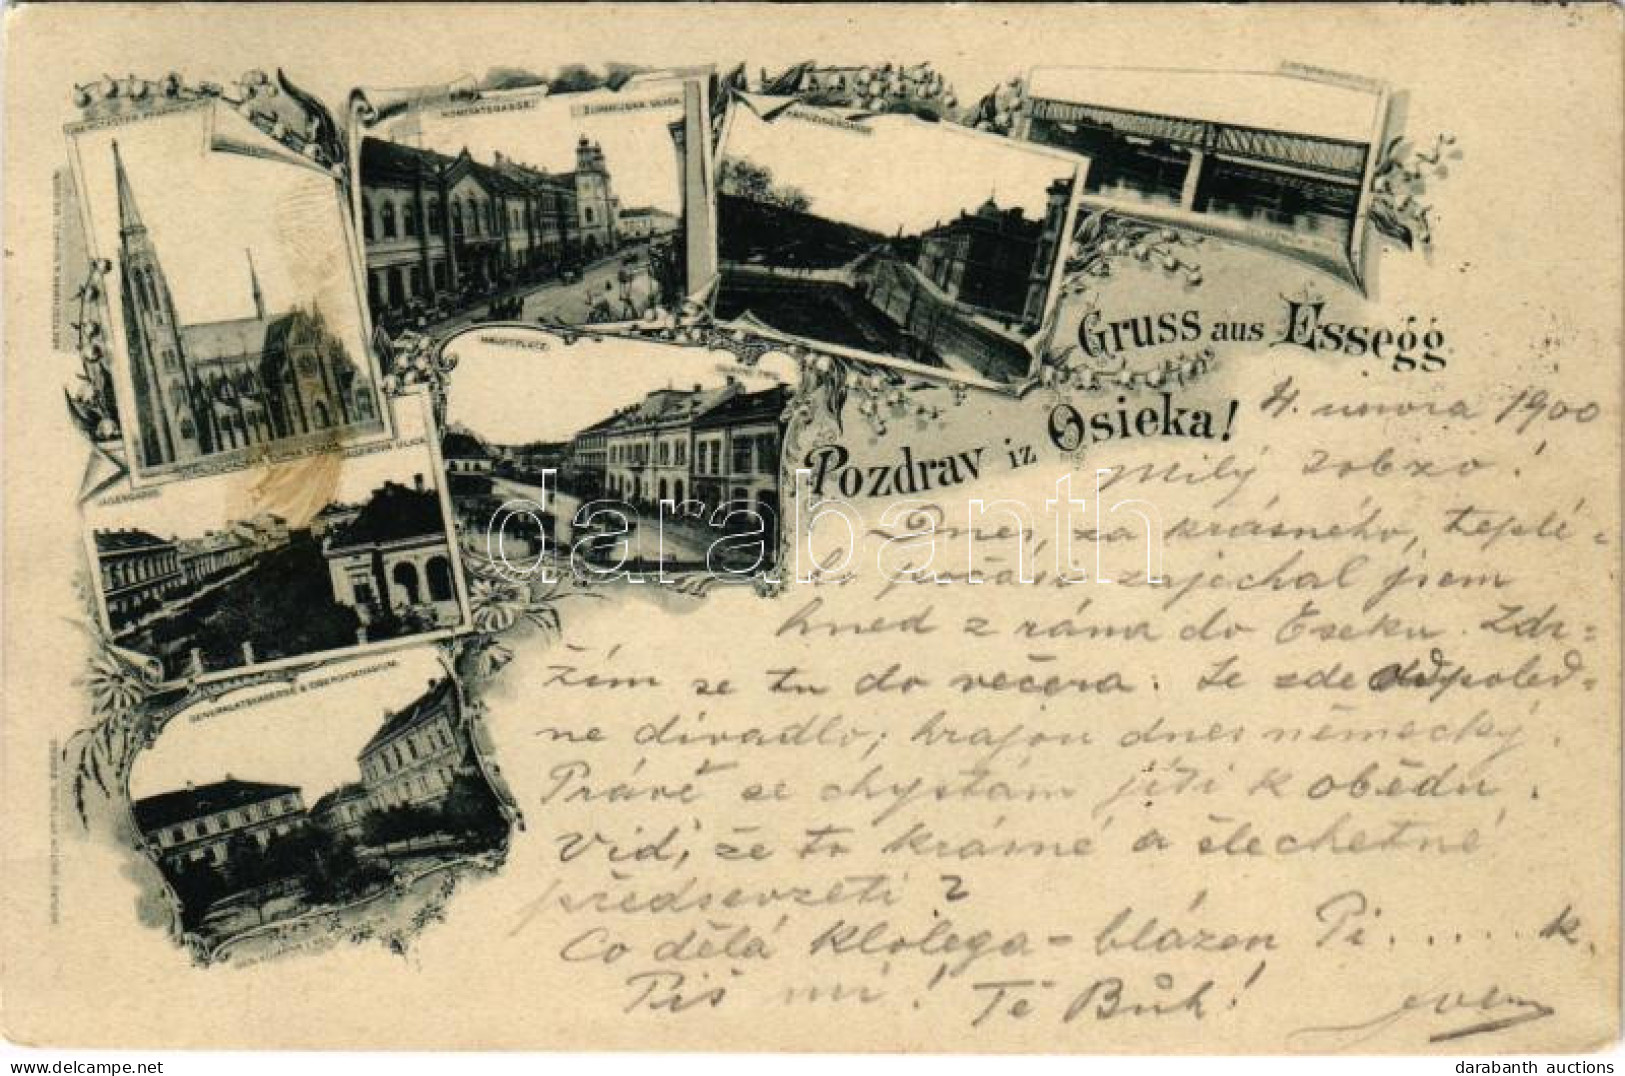 KOMITATSGASSE
ŽUPANIJSKA ULICA
KAPUZINERGASSE
HAUPTPLATZ
JÄGERGASSE
GENERALATSGASSE & OBERGYMNASIUM
Gruss aus Essegg
Pozdrav iz Osieka!
4. února 1900
Milý
Dnes, za krásného, teplé-
ho počasí zajechal jsem
hned z rána do Eseku. Zdr-
žím se tu do večera. Je zde odpoled-
ne divadlo; hrajou dnes německý.
Právě se chystám jíti k obědu.
Viď, že to krásné a šlechetné
předsevzetí?
Co dělá kolega-blázen Pi.....k.
Piš mi! Tě Bůh!
darabanth
darabanth auctions